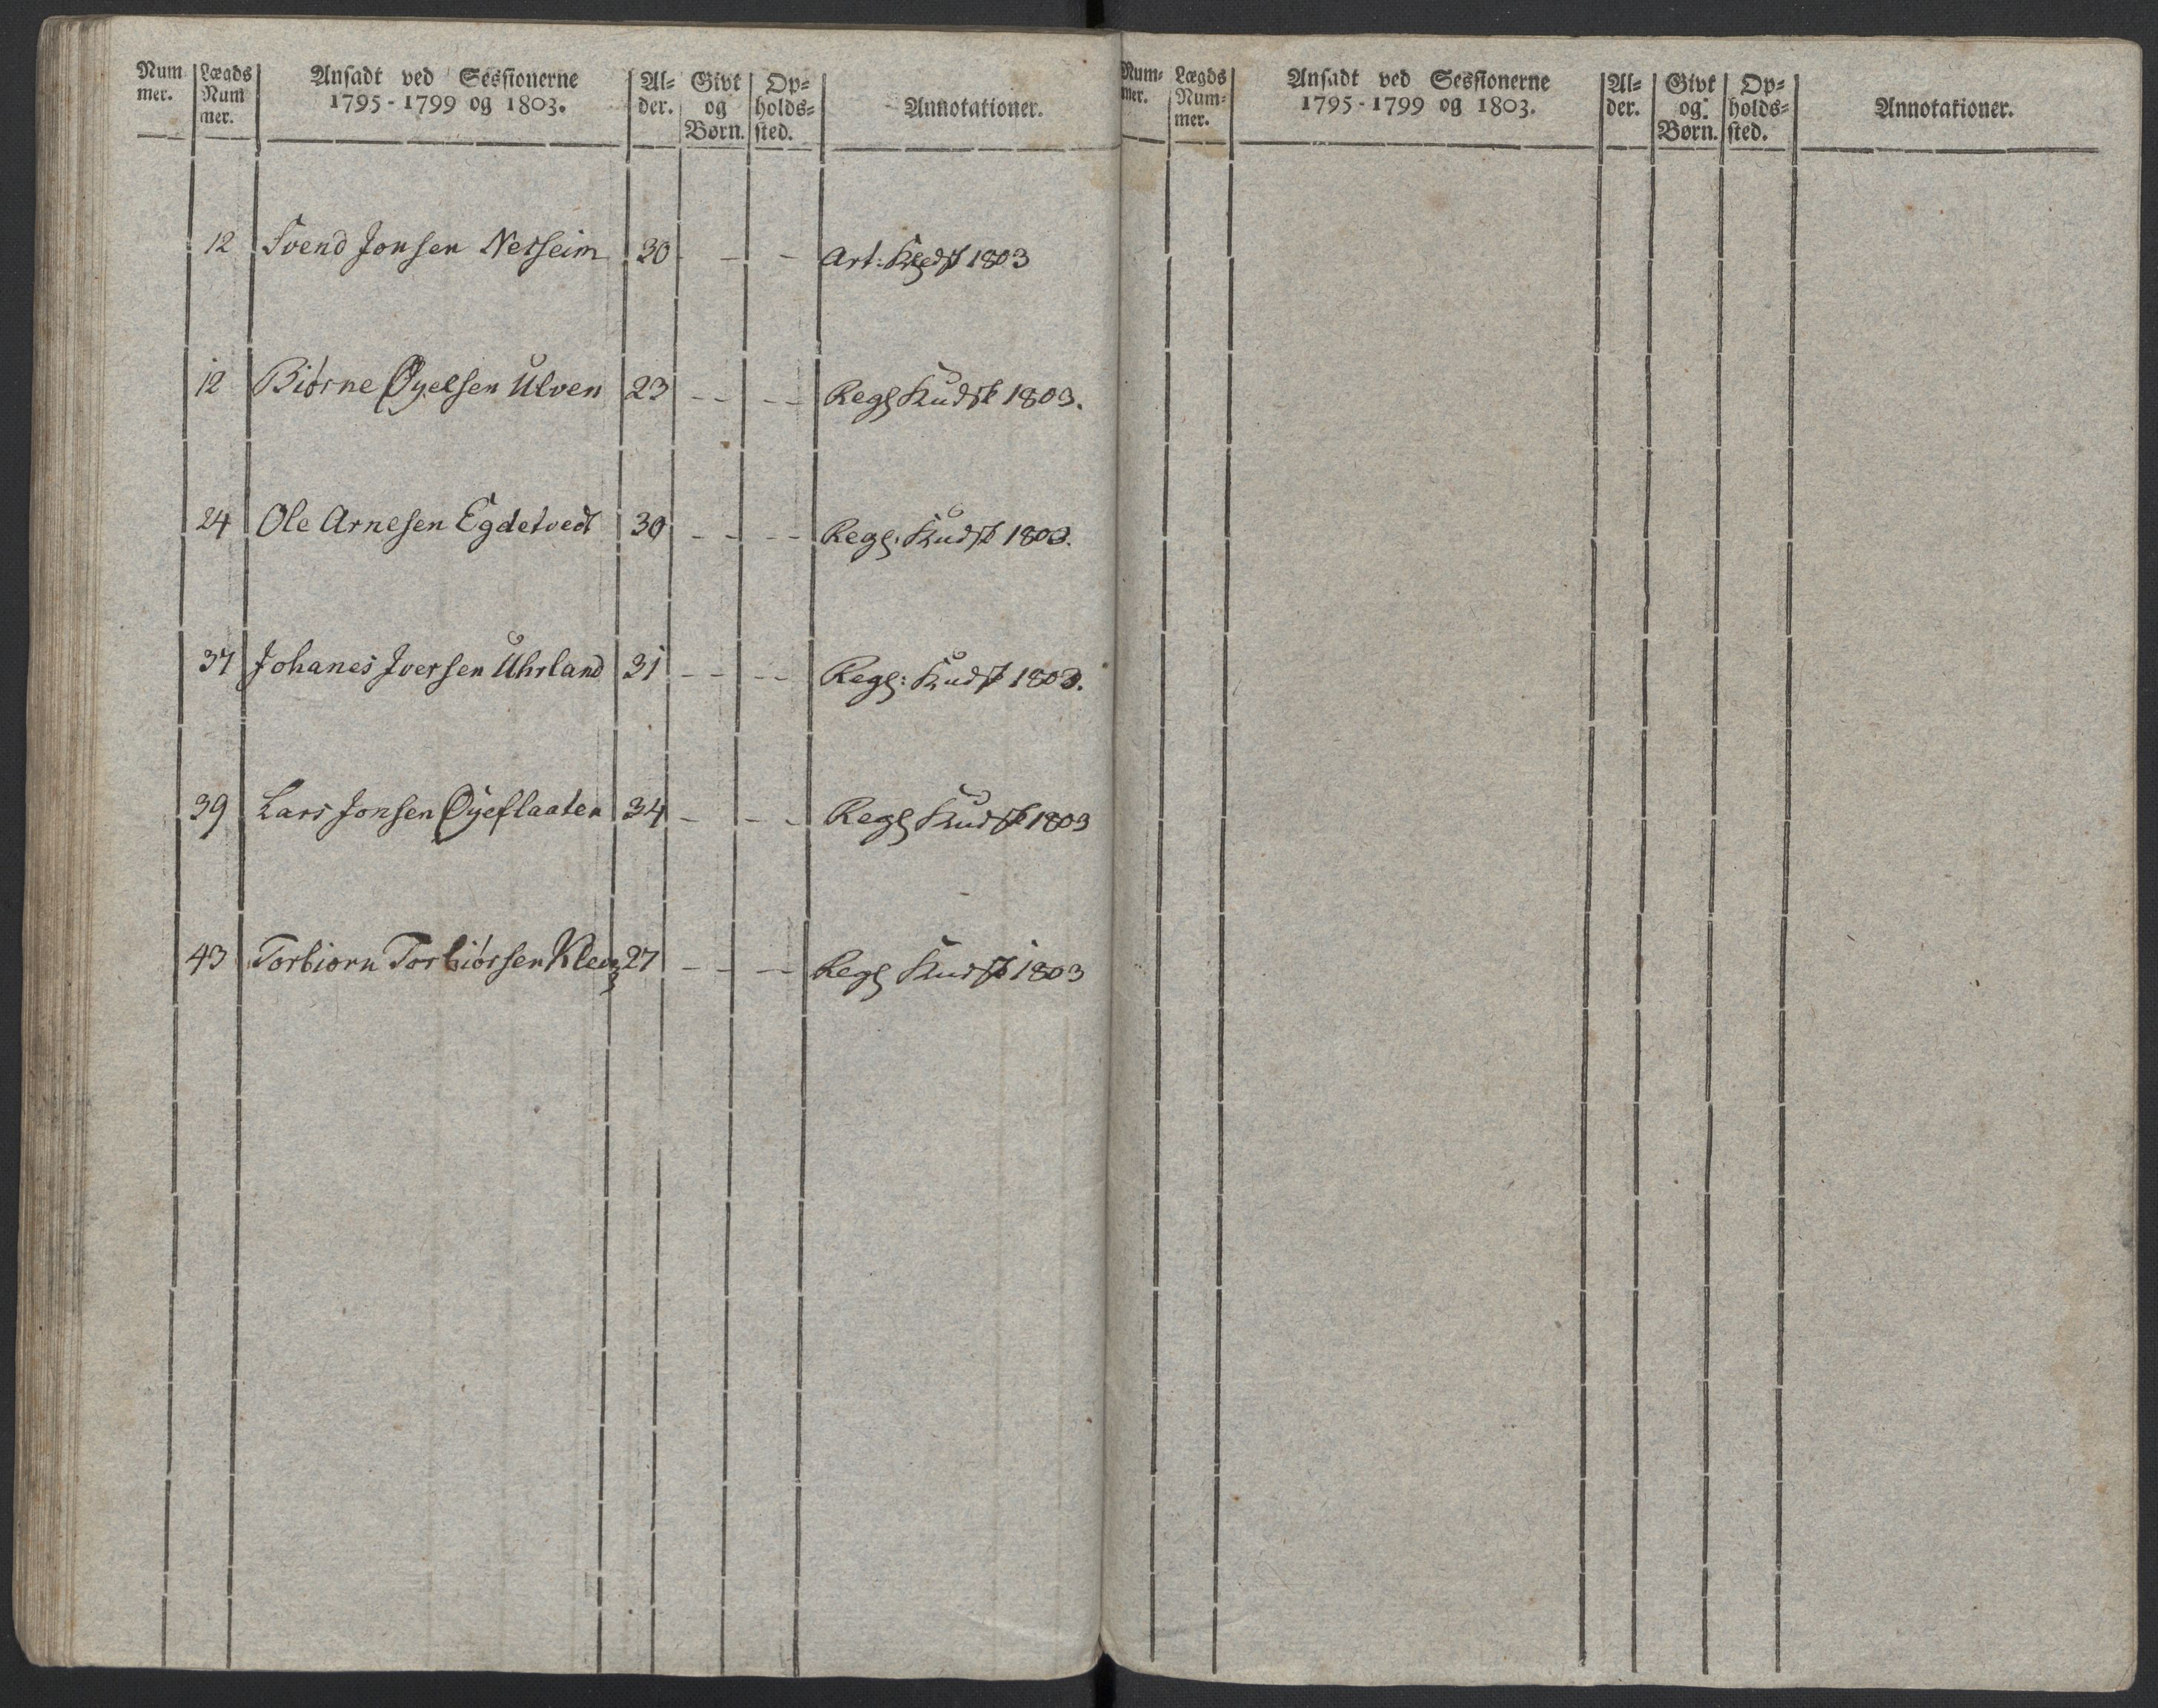 Num mer. Lægds Num mer. Ansadt ved Sessionerne 1795-1799 og 1803. Al= der. Givt og Børn. Op= holds= sted. Annotationer.
12 Svend Jonsen Nesheim 30 - - Art: 1803
12 Biørne Øyelsen Ulven 23 - - - - Regl Kudsk 1803.
24 Ole Arnesen Egdetvedt 30 - - - - Regl: Kudsk 1803.
37 Johanes Iversen Uhrland 31 - - - - Regl: Kudsk 1803.
39 Lars Jonsen Øyeflaaten 34 - - - Regl Kudsk 1803
43 Torbiørn Torbiørsen 27 - - - - Regl Kudsk 1803
Num= mer. Lægds Num= mer. Ansadt ved Sessionerne 1795-1799 og 1803. Al= der. Givt og Børn. Op= holds= sted. Annotationer.